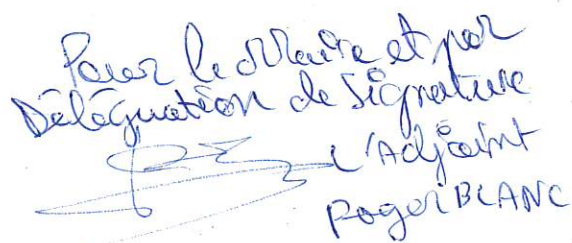 Pour le Maire et par
Déléguation de Signature
L'Adjoint
Roger BLANC